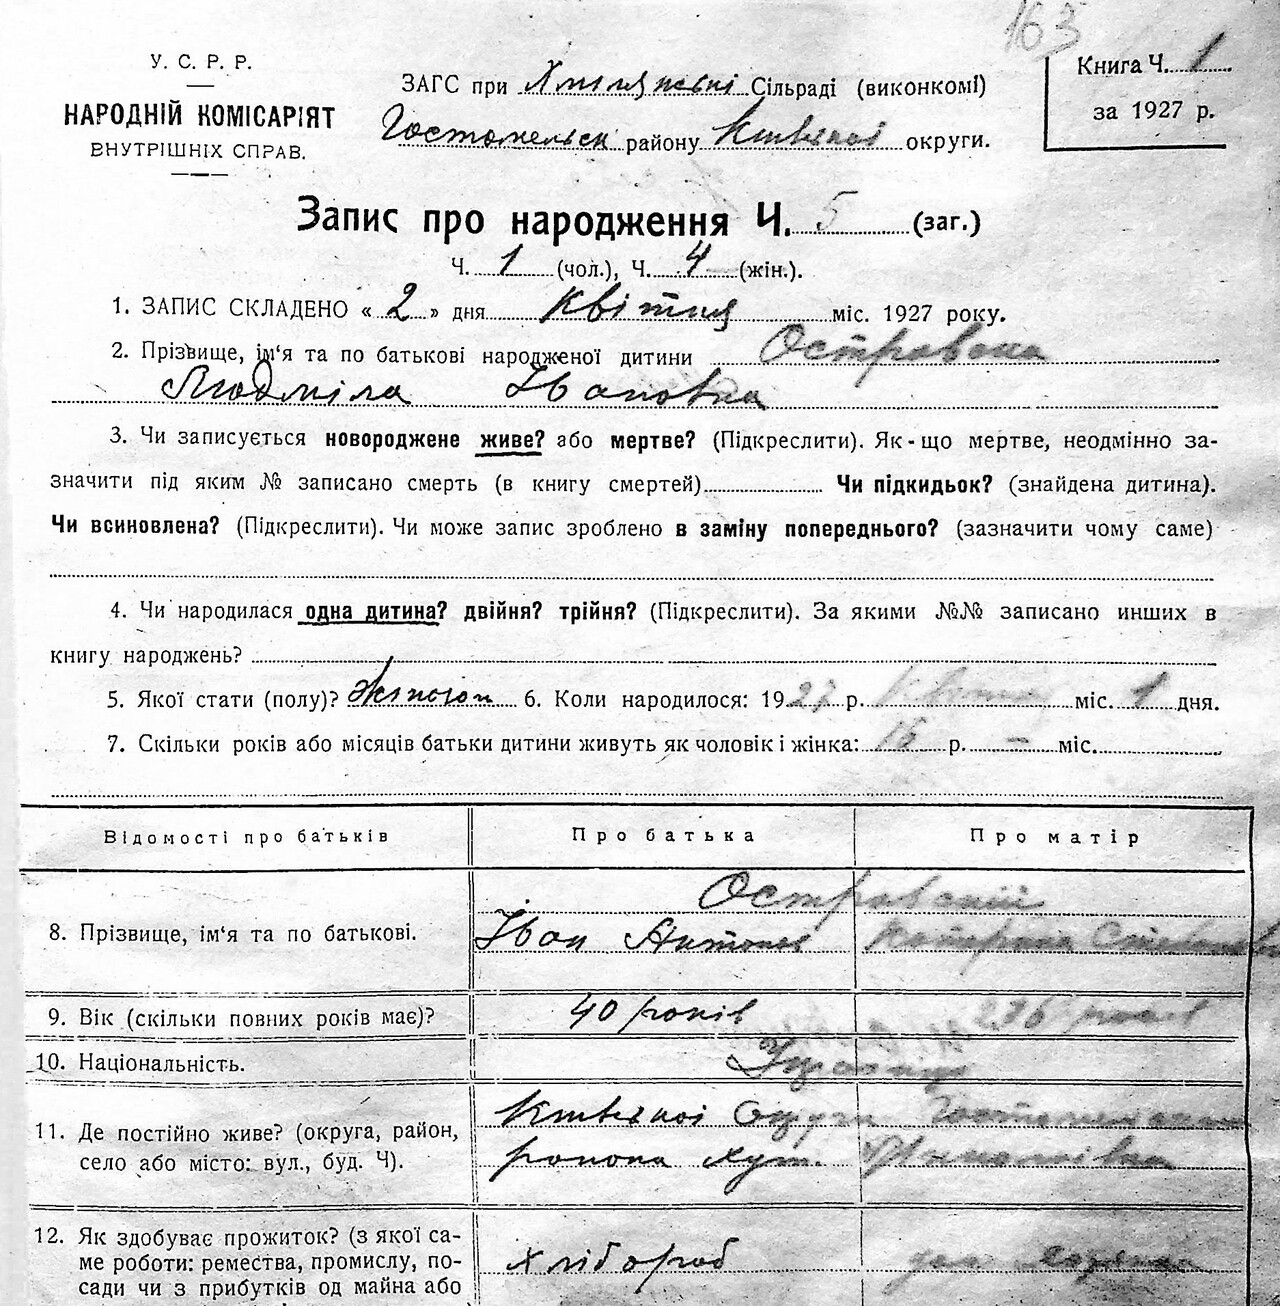 163
У. С. Р. Р.
НАРОДНІЙ КОМІСАРІЯТ
ВНУТРІШНІХ СПРАВ.
ЗАГС при Сільраді (виконкомі)
Гостомельськ району Київської округи.
Книга Ч. 1
за 1927 р.
Запис про народження Ч. 5 (заг.)
Ч. 1 (чол.), Ч. 4 (жін.).
1. ЗАПИС СКЛАДЕНО « 2 » дня Квітня міс. 1927 року.
2. Прізвище, ім‘я та по батькові народженої дитини
Людміла Івановна
3. Чи записується новороджене живе? або мертве? (Підкреслити). Як-що мертве, неодмінно за-
значити під яким № записано смерть (в книгу смертей) Чи підкидьок? (знайдена дитина).
Чи всиновлена? (Підкреслити). Чи може запис зроблено в заміну попереднього? (зазначити чому саме)
4. Чи народилася одна дитина? двійня? трійня? (Підкреслити). За якими №№ записано инших в
книгу народжень?
5. Якої стати (полу)? 6. Коли народилося: 1927 р. Квітня міс. 1 дня.
7. Скільки років або місяців батьки дитини живуть як чоловік і жінка: р. — міс.
Відомості про батьків Про батька Про матір
8. Прізвище, ім‘я та по батькові.
Островській
Іван Антонов
9. Вік (скільки повних років має)? 40 років
10. Національність.
11. Де постійно живе? (округа, район,
село або місто: вул., буд. Ч).
Київської Округи
района хут.
12. Як здобуває прожиток? (з якої са-
ме роботи: ремества, промислу, по-
сади чи з прибутків од майна або
хлібороб